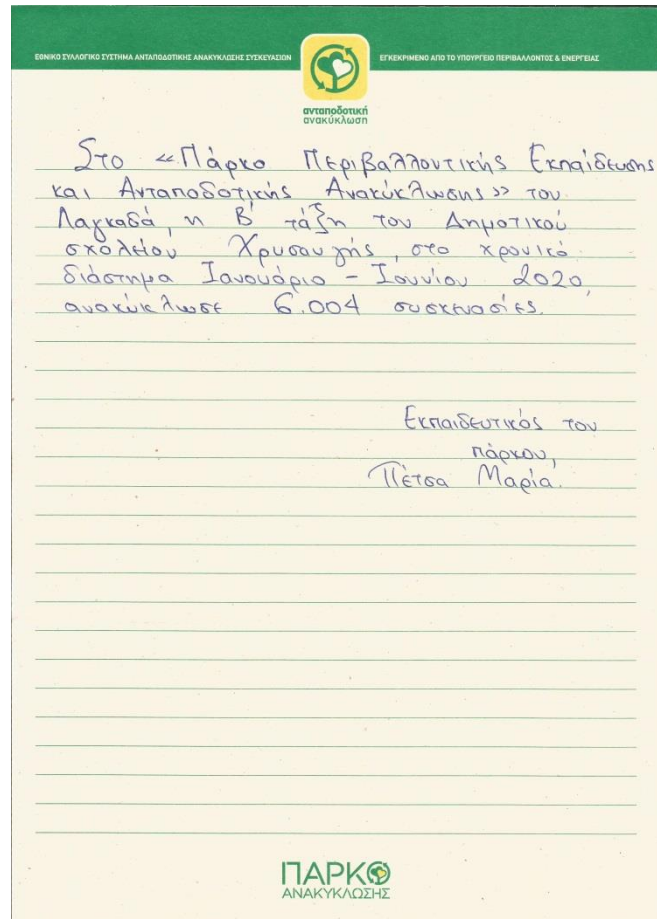 ΕΘΝΙΚΟ ΣΥΛΛΟΓΙΚΟ ΣΥΣΤΗΜΑ ΑΝΤΑΠΟΔΟΤΙΚΗΣ ΑΝΑΚΥΚΛΩΣΗΣ ΣΥΣΚΕΥΑΣΙΩΝ
ΕΓΚΕΚΡΙΜΕΝΟ ΑΠΟ ΤΟ ΥΠΟΥΡΓΕΙΟ ΠΕΡΙΒΑΛΛΟΝΤΟΣ & ΕΝΕΡΓΕΙΑΣ
ανταποδοτική
ανακύκλωση
Στο «Πάρκο Περιβαλλοντικής Εκπαίδευσης
και Ανταποδοτικής Ανακύκλωσης» του
Λαγκαδά, η Β' τάξη του Δημοτικού
σχολείου Χρυσαυγής, στο χρονικό
διάστημα Ιανουάριο - Ιουνίου 2020,
ανακύκλωσε 6.004 συσκευασίες.
Εκπαιδευτικός του
πάρκου,
Πέτσα Μαρία.
ΠΑΡΚΟ
ΑΝΑΚΥΚΛΩΣΗΣ